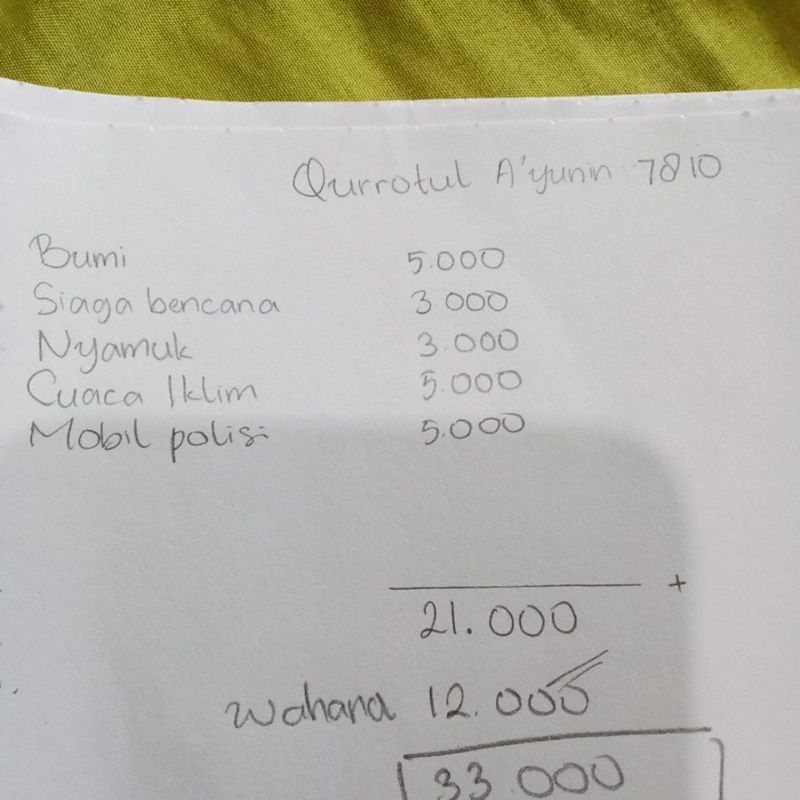 Qurrotul A'yunin 7810
Bumi 5.000
Siaga bencana 3.000
Nyamuk 3.000
Cuaca Iklim 5.000
Mobil polisi 5.000
+
21.000
Wahana 12.000
33.000